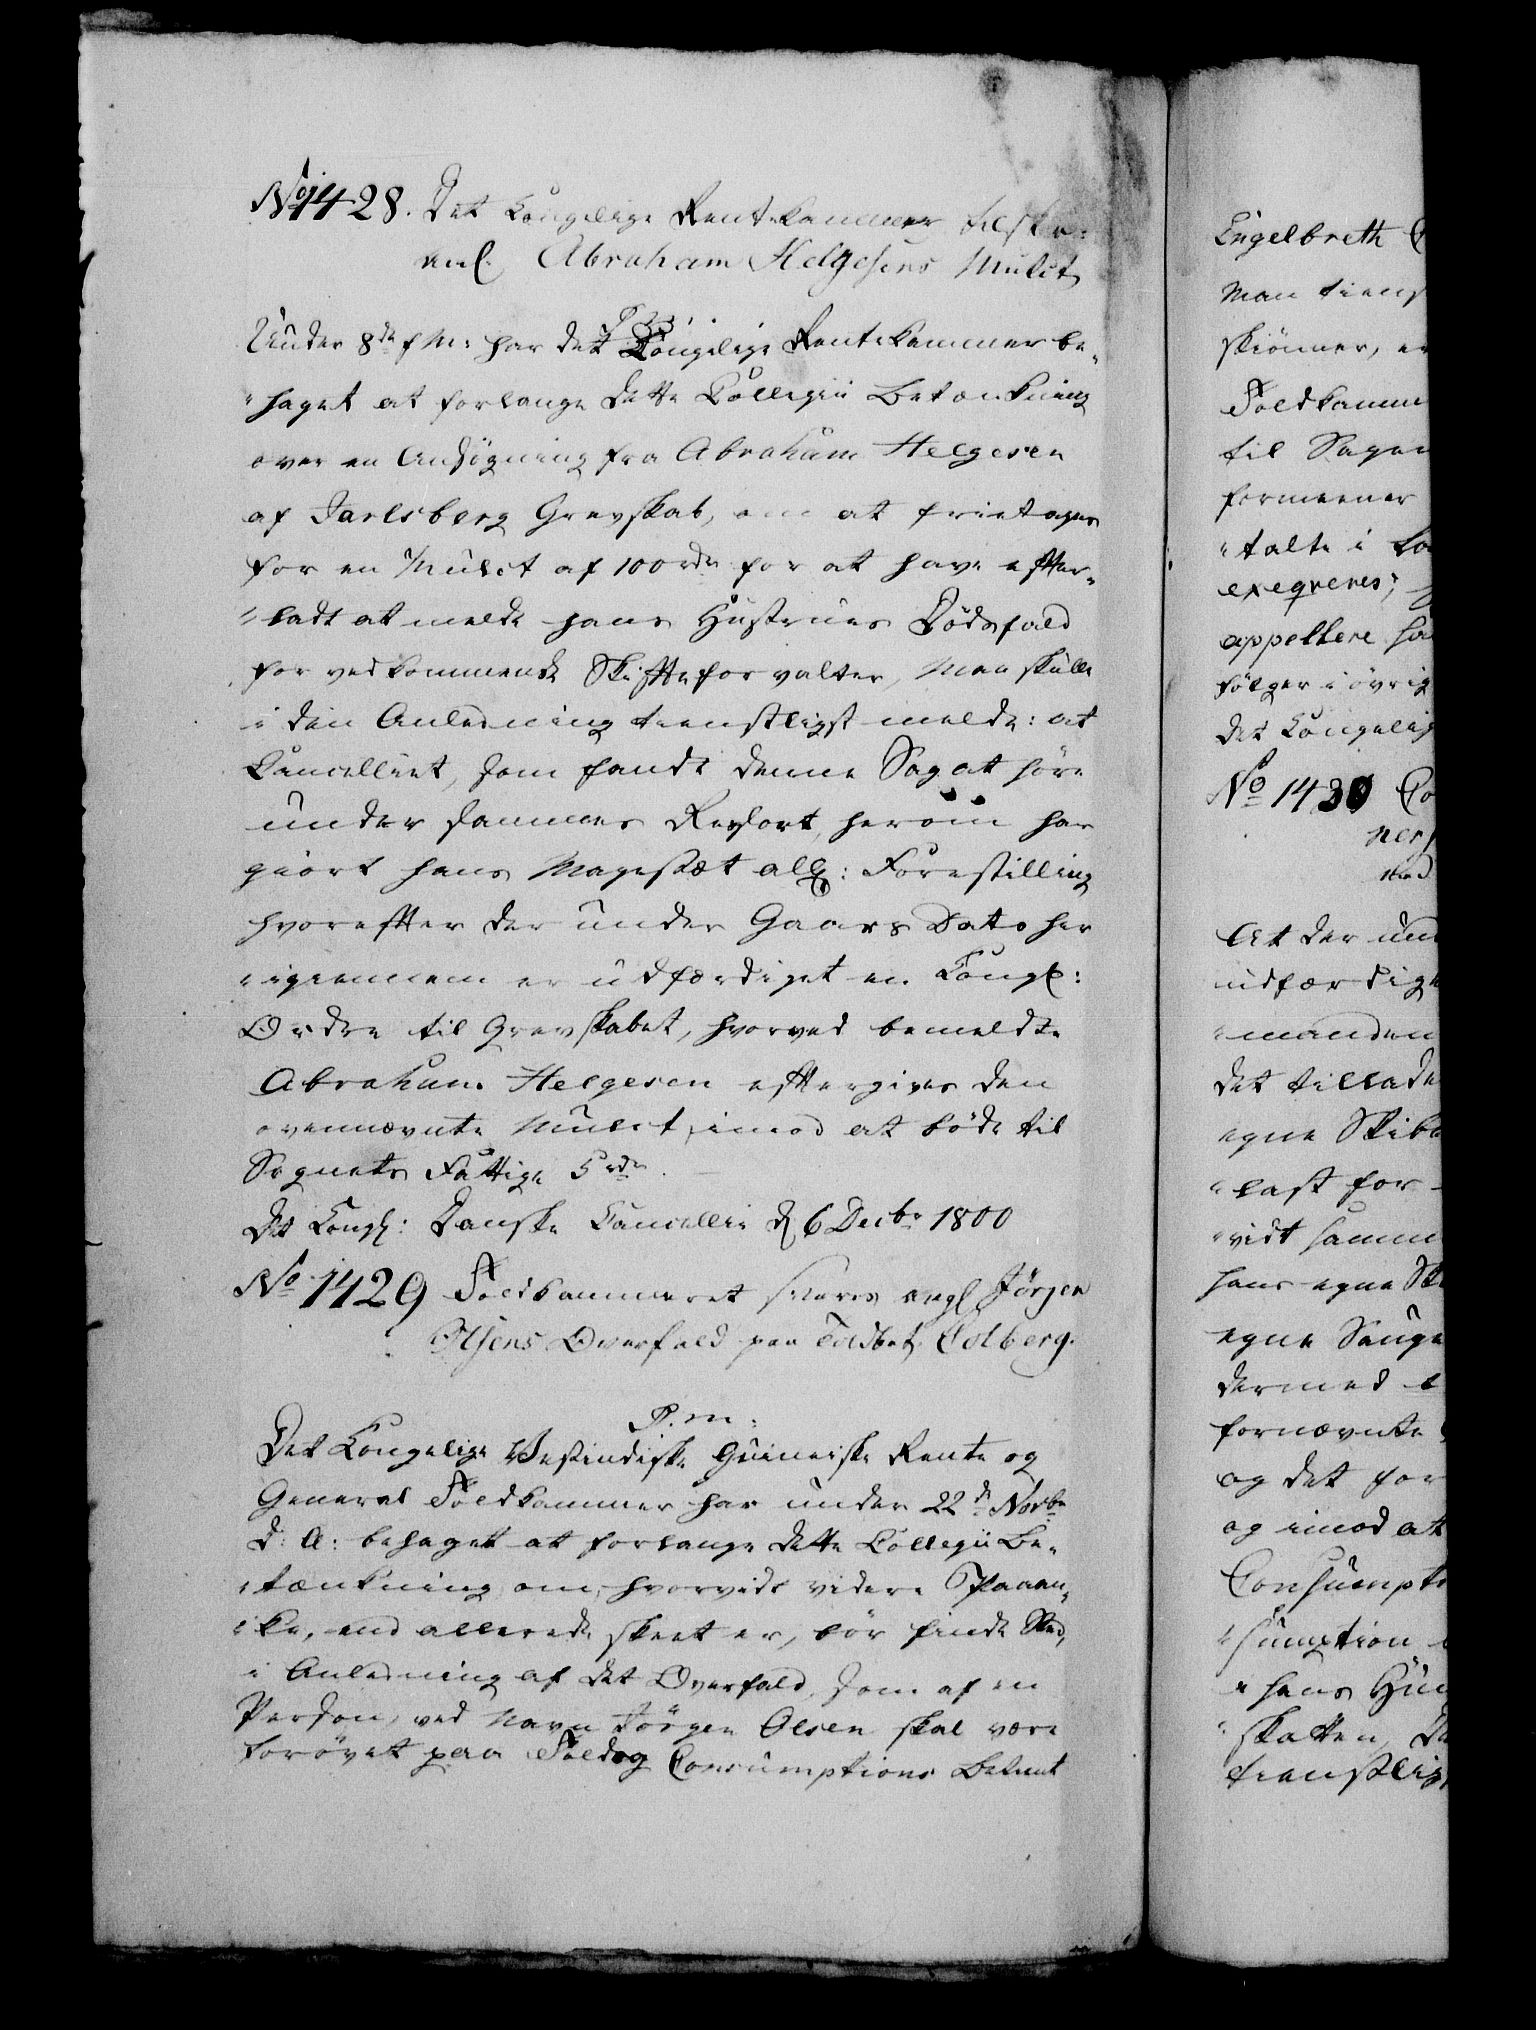 No 1428. Det Kongelige Rentekammer tilskr:
anl. Abraham Helgesens Mulct
P. M.
Under 8de f. M: har det Kongelige Rentekammer be-
haget at forlange dette Collegii Betænkning
over en Ansøgning fra Abraham Helgesen
af Jarlsberg Grevskab, om at fritages
for en Mulct af 100 rdr for at have efter-
ladt at melde hans Hustrues Dødsfald
for vedkommende Skifteforvalter, Man skulle
i den Anledning tienstligst melde: at
Cancelliet, som fandt denne Sag at høre
under sammes Ressort, herom har
giort hans Majestæt allg: Forestilling
hvorefter der under Gaars Dato her
igiennem er udfærdiget en Kongl:
Ordre til Grevskabet, hvorved bemeldte
Abraham Helgesen eftergives den
ovennævnte Mulct, imod at bøde til
Sognets Fattige 5 rdr.
Det Kongl: Danske Cancellie d 6 Decbr 1800
No 1429 Toldkammeret svares angl Jørgen
Olsens Overfald paa Toldbet. Colberg.
P. M:
Det Kongelige Vestindiske Guineiske Rente og
General Toldkammer har under 22de Novbr
d: A: behaget at forlange dette Collegii Be-
tænkning om, hvorvidt videre Paaan-
ke, end allerede skeet er, bør finde Sted,
i Anledning af det Overfald, som af en
Person, ved Navn Jørgen Olsen skal være
forøvet paa Told og Consumptions Betient
Engelbreth C
Man tienst
skiønner, er
Toldkamm
til Sagen
formeener
talte i
exeqveres;
appellere ha
følger i øvrig
det Kongelig
No 1430 Co
ners
At der und
udfærdige
manden
det tillade
egne Skibe
last for
vidt samm
hans egne Sk
egne Sauge
dermed
fornævnte
og det for
og imod at
Consumpti
sumption
hans Huu
skatten, D
tienstligs